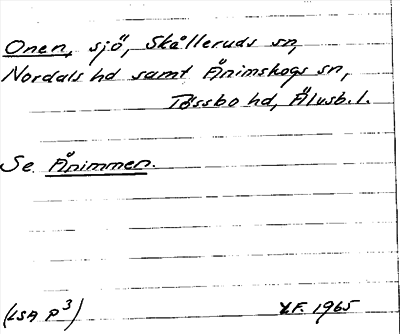 Onen, sjö, Skålleruds sn,
Nordals hd samt Ånimskogs sn,
Tössbo hd, Älvsb. l.
Se Ånimmen.
(LSA P3)
Y.F. 1965